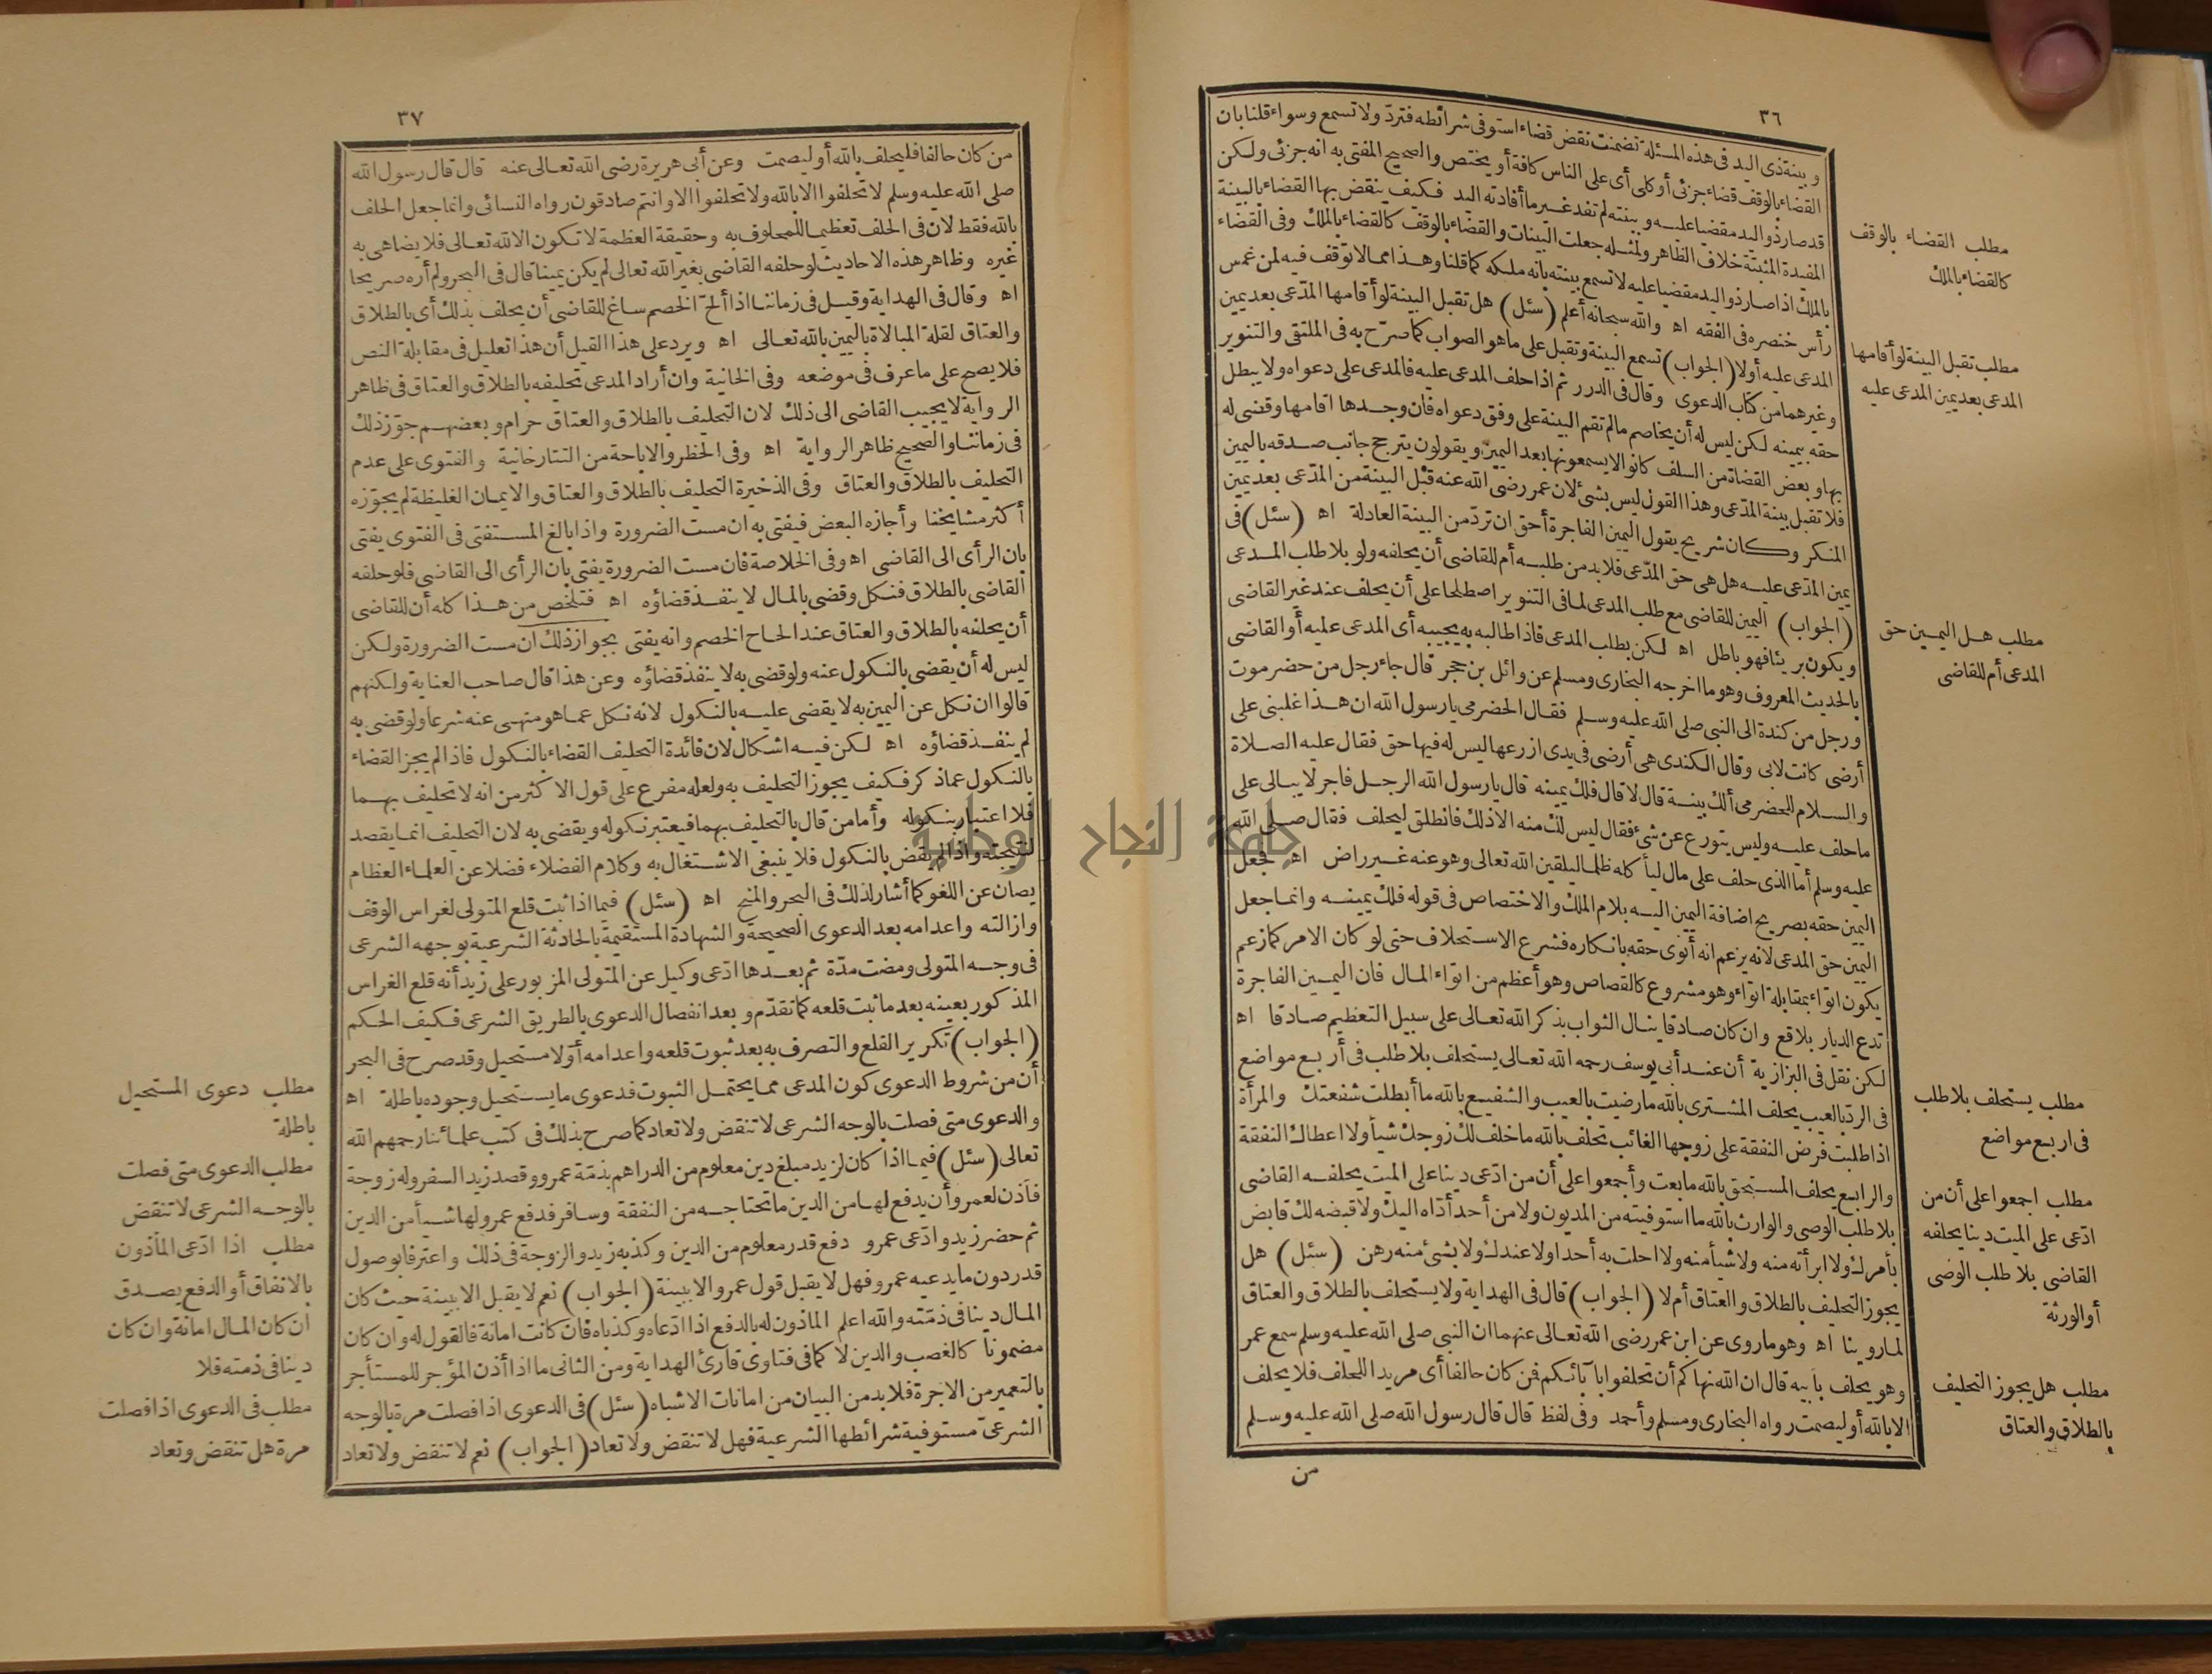 ٣٦
وبينة ذى اليد فى هذه المسئلة تضمنت نقض قضاء استوفى شرائطه فترد ولا تسمع وسواء قلنا بان
القضاء بالوقف قضاء جزئى أو كلى أى على الناس كافة أو يختص والصحيح المفتى به انه جزئى ولكن
قد صار ذو اليد مقضيا عليه وبينته لم تفد غير ما أفادته اليد فكيف ينقض بها القضاء بالبينة
المفيدة المثبتة خلاف الظاهر ولمثله جعلت البينات والقضاء بالوقف كالقضاء بالملك وفى القضاء
بالملك اذا صار ذو اليد مقضيا عليه لا تسمع بينته بأنه ملكه كما قلنا وهذا مما لا توقف فيه لمن غمس
رأس خنصره فى الفقه اه والله سبحانه أعلم (سئل) هل تقبل البينة لو أقامها المدعى بعد يمين
المدعى عليه أولا (الجواب) تسمع البينة وتقبل على ما هو الصواب كما صرح به فى الملتقى والتنوير
وغيرهما من كتاب الدعوى وقال فى الدرر ثم اذا حلف المدعى عليه فالمدعى على دعواه ولا يبطل
حقه بيمينه لكن ليس له أن يخاصم مالم تقم البينة على وفق دعواه فان وجدها اقامها وقضى له
بها وبعض القضاة من السلف كانوا لا يسمعونها بعد اليمين ويقولون يترجح جانب صدقه باليمين
فلا تقبل بينة المدعى وهذا القول ليس بشئ لان عمر رضى الله عنه قبل البينة من المدعى بعد يمين
المنكر وكان شريح يقول اليمين الفاجرة أحق ان تردّ من البينة العادلة اه (سئل) فى
يمين المدعى عليه هل هى حق المدعى فلا بد من طلبه أم للقاضى أن يحلفه ولو بلا طلب المدعى
(الجواب) اليمين للقاضى مع طلب المدعى لما فى التنوير اصطلحا على أن يحلف عند غير القاضى
ويكون بريئا فهو باطل اه لكن بطلب المدعى فاذا طالبه به يجيبه أى المدعى عليه أو القاضى
بالحديث المعروف وهو ما اخرجه البخارى ومسلم عن وائل بن حجر قال جاء رجل من حضرموت
ورجل من كندة الى النبى صلى الله عليه وسلم فقال الحضرمى يا رسول الله ان هذا غلبنى على
أرضى كانت لابى وقال الكندى هى أرضى فى يدى ازرعها ليس له فيها حق فقال عليه الصلاة
والسلام للحضرمى ألك بينة قال لا قال فلك يمينه قال يا رسول الله الرجل فاجر لا يبالى على
ما حلف عليه وليس يتورع عن شئ فقال ليس لك منه الا ذلك فانطلق ليحلف فقال صلى الله
عليه وسلم أما الذى حلف على مال ليأكله ظلما ليلقين الله تعالى وهو عنه غير راض اه فجعل
اليمين حقه بصريح اضافة اليمين اليه بلام الملك والاختصاص فى قوله فلك يمينه وانما جعل
اليمين حق المدعى لانه يزعم انه أتوى حقه بانكاره فشرع الاستحلاف حتى لو كان الامر كما زعم
يكون اتواء بمقابلة اتواء وهو مشروع كالقصاص وهو أعظم من اتواء المال فان اليمين الفاجرة
تدع الديار بلاقع وان كان صادقا ينال الثواب بذكر الله تعالى على سبيل التعظيم صادقا اه
لكن نقل فى البزازية أن عند أبى يوسف رحمه الله تعالى يستحلف بلا طلب فى أربع مواضع
فى الرد بالعيب يحلف المشترى بالله ما رضيت بالعيب والشفيع بالله ما أبطلت شفعتك والمرأة
اذا طلبت فرض النفقة على زوجها الغائب تحلف بالله ما خلف لك زوجك شيأ ولا اعطاك النفقة
والرابع يحلف المستحق بالله ما بعت وأجمعوا على أن من ادّعى دينا على الميت يحلفه القاضى
بلا طلب الوصى والوارث بالله ما استوفيته من المديون ولا من أحد أدّاه اليك ولا قبضه لك قابض
بأمرك ولا ابرأته منه ولا شيأ منه ولا احلت به أحدا ولا عندك ولا بشئ منه رهن (سئل) هل
يجوز التحليف بالطلاق والعتاق أم لا (الجواب) قال فى الهداية ولا يستحلف بالطلاق والعتاق
لما روينا اه وهو ما روى عن ابن عمر رضى الله تعالى عنهما ان النبى صلى الله عليه وسلم سمع عمر
وهو يحلف بأبيه قال ان الله نهاكم أن تحلفوا بآبائكم فمن كان حالفا أى مريدا للحلف فلا يحلف
الا بالله أو ليصمت رواه البخارى ومسلم وأحمد وفى لفظ قال قال رسول الله صلى الله عليه وسلم
من
مطلب القضاء بالوقف
كالقضاء بالملك
مطلب تقبل البينة لو أقامها
المدعى بعد يمين المدعى عليه
مطلب هل اليمين حق
المدعى أم للقاضى
مطلب يستحلف بلا طلب
فى اربع مواضع
مطلب اجمعوا على أن من
ادّعى على الميت دينا يحلفه
القاضى بلا طلب الوصى
أو الورثة
مطلب هل يجوز التحليف
بالطلاق والعتاق
٣٧
من كان حالفا فليحلف بالله أو ليصمت وعن أبى هريرة رضى الله تعالى عنه قال قال رسول الله
صلى الله عليه وسلم لا تحلفوا الا بالله ولا تحلفوا الا وانتم صادقون رواه النسائى وانما جعل الحلف
بالله فقط لان فى الحلف تعظيما للمحلوف به وحقيقة العظمة لا تكون الا لله تعالى فلا يضاهى به
غيره وظاهر هذه الاحاديث لو حلفه القاضى بغير الله تعالى لم يكن يمينا قال فى البحر ولم أره صريحا
اه وقال فى الهداية وقيل فى زماننا اذا ألحّ الخصم ساغ للقاضى أن يحلف بذلك أى بالطلاق
والعتاق لقلة المبالاة باليمين بالله تعالى اه ويرد على هذا القيل أن هذا تعليل فى مقابلة النص
فلا يصح على ما عرف فى موضعه وفى الخانية وان أراد المدعى تحليفه بالطلاق والعتاق فى ظاهر
الرواية لا يجيب القاضى الى ذلك لان التحليف بالطلاق والعتاق حرام وبعضهم جوّز ذلك
فى زماننا والصحيح ظاهر الرواية اه وفى الحظر والاباحة من التتارخانية والفتوى على عدم
التحليف بالطلاق والعتاق وفى الذخيرة التحليف بالطلاق والعتاق والايمان الغليظة لم يجوّزه
أكثر مشايخنا وأجازه البعض فيفتى به ان مست الضرورة واذا بالغ المستفتى فى الفتوى يفتى
بان الرأى الى القاضى اه وفى الخلاصة فان مست الضرورة يفتى بان الرأى الى القاضى فلو حلفه
القاضى بالطلاق فنكل وقضى بالمال لا ينفذ قضاؤه اه فتلخص من هذا كله أن للقاضى
أن يحلفه بالطلاق والعتاق عند الحاح الخصم وانه يفتى بجواز ذلك ان مست الضرورة ولكن
ليس له أن يقضى بالنكول عنه ولو قضى به لا ينفذ قضاؤه وعن هذا قال صاحب العناية ولكنهم
قالوا ان نكل عن اليمين به لا يقضى عليه بالنكول لانه نكل عما هو منهى عنه شرعا ولو قضى به
لم ينفذ قضاؤه اه لكن فيه اشكال لان فائدة التحليف القضاء بالنكول فاذا لم يجز القضاء
بالنكول عما ذكر فكيف يجوز التحليف به ولعله مفرع على قول الاكثر من انه لا تحليف بهما
فلا اعتبار بنكوله وأما من قال بالتحليف بهما فيعتبر نكوله ويقضى به لان التحليف انما يقصد
لنتيجته واذا لم يقض بالنكول فلا ينبغى الاشتغال به وكلام الفضلاء فضلا عن العلماء العظام
يصان عن اللغو كما أشار لذلك فى البحر والمنح اه (سئل) فيما اذا ثبت قلع المتولى لغراس الوقف
وازالته واعدامه بعد الدعوى الصحيحة والشهادة المستقيمة بالحادثة الشرعية بوجهه الشرعى
فى وجه المتولى ومضت مدّة ثم بعدها ادّعى وكيل عن المتولى المزبور على زيد أنه قلع الغراس
المذكور بعينه بعد ما ثبت قلعه كما تقدّم وبعد انفصال الدعوى بالطريق الشرعى فكيف الحكم
(الجواب) تكرير القلع والتصرف به بعد ثبوت قلعه واعدامه أوّلا مستحيل وقد صرح فى البحر
أن من شروط الدعوى كون المدعى مما يحتمل الثبوت فدعوى ما يستحيل وجوده باطلة اه
والدعوى متى فصلت بالوجه الشرعى لا تنقض ولا تعاد كما صرح بذلك فى كتب علمائنا رحمهم الله
تعالى (سئل) فيما اذا كان لزيد مبلغ دين معلوم من الدراهم بذمّة عمرو وقصد زيد السفر وله زوجة
فأذن لعمرو أن يدفع لها من الدين ما تحتاجه من النفقة وسافر فدفع عمرو لها شيأ من الدين
ثم حضر زيد وادّعى عمرو دفع قدر معلوم من الدين وكذبه زيد والزوجة فى ذلك واعترفا بوصول
قدر دون ما يدعيه عمرو فهل لا يقبل قول عمرو الا ببينة (الجواب) نعم لا يقبل الا ببينة حيث كان
المال دينا فى ذمّته والله اعلم المأذون له بالدفع اذا ادّعاه وكذباه فان كانت امانة فالقول له وان كان
مضمونا كالغصب والدين لا كما فى فتاوى قارئ الهداية ومن الثانى ما اذا أذن المؤجر للمستأجر
بالتعمير من الاجرة فلا بد من البيان من امانات الاشباه (سئل) فى الدعوى اذا فصلت مرة بالوجه
الشرعىّ مستوفية شرائطها الشرعية فهل لا تنقض ولا تعاد (الجواب) نعم لا تنقض ولا تعاد
مطلب دعوى المستحيل
باطلة
مطلب الدعوى متى فصلت
بالوجه الشرعى لا تنقض
مطلب اذا ادّعى المأذون
بالانفاق أو الدفع يصدق
ان كان المال امانة وان كان
دينا فى ذمته فلا
مطلب فى الدعوى اذا فصلت
مرة هل تنقض وتعاد
جامعة النجاح الوطنية